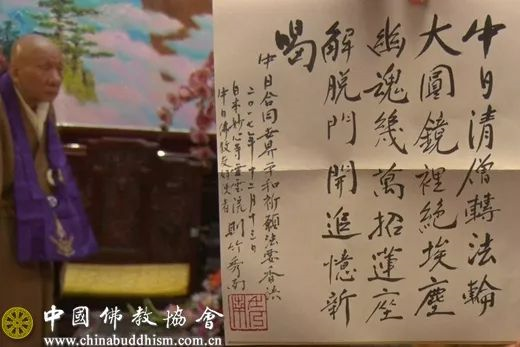 中日清僧轉法輪
大圓鏡裡絕埃塵
幽魂幾萬招蓮座
解脫門開追憶新
喝
中日合同世界平和祈願法要香語
二〇一七年十二月十三日
日本妙心寺靈雲流 則竹秀南
中日佛教友好使者
中國佛教協會
www.chinabuddhism.com.cn